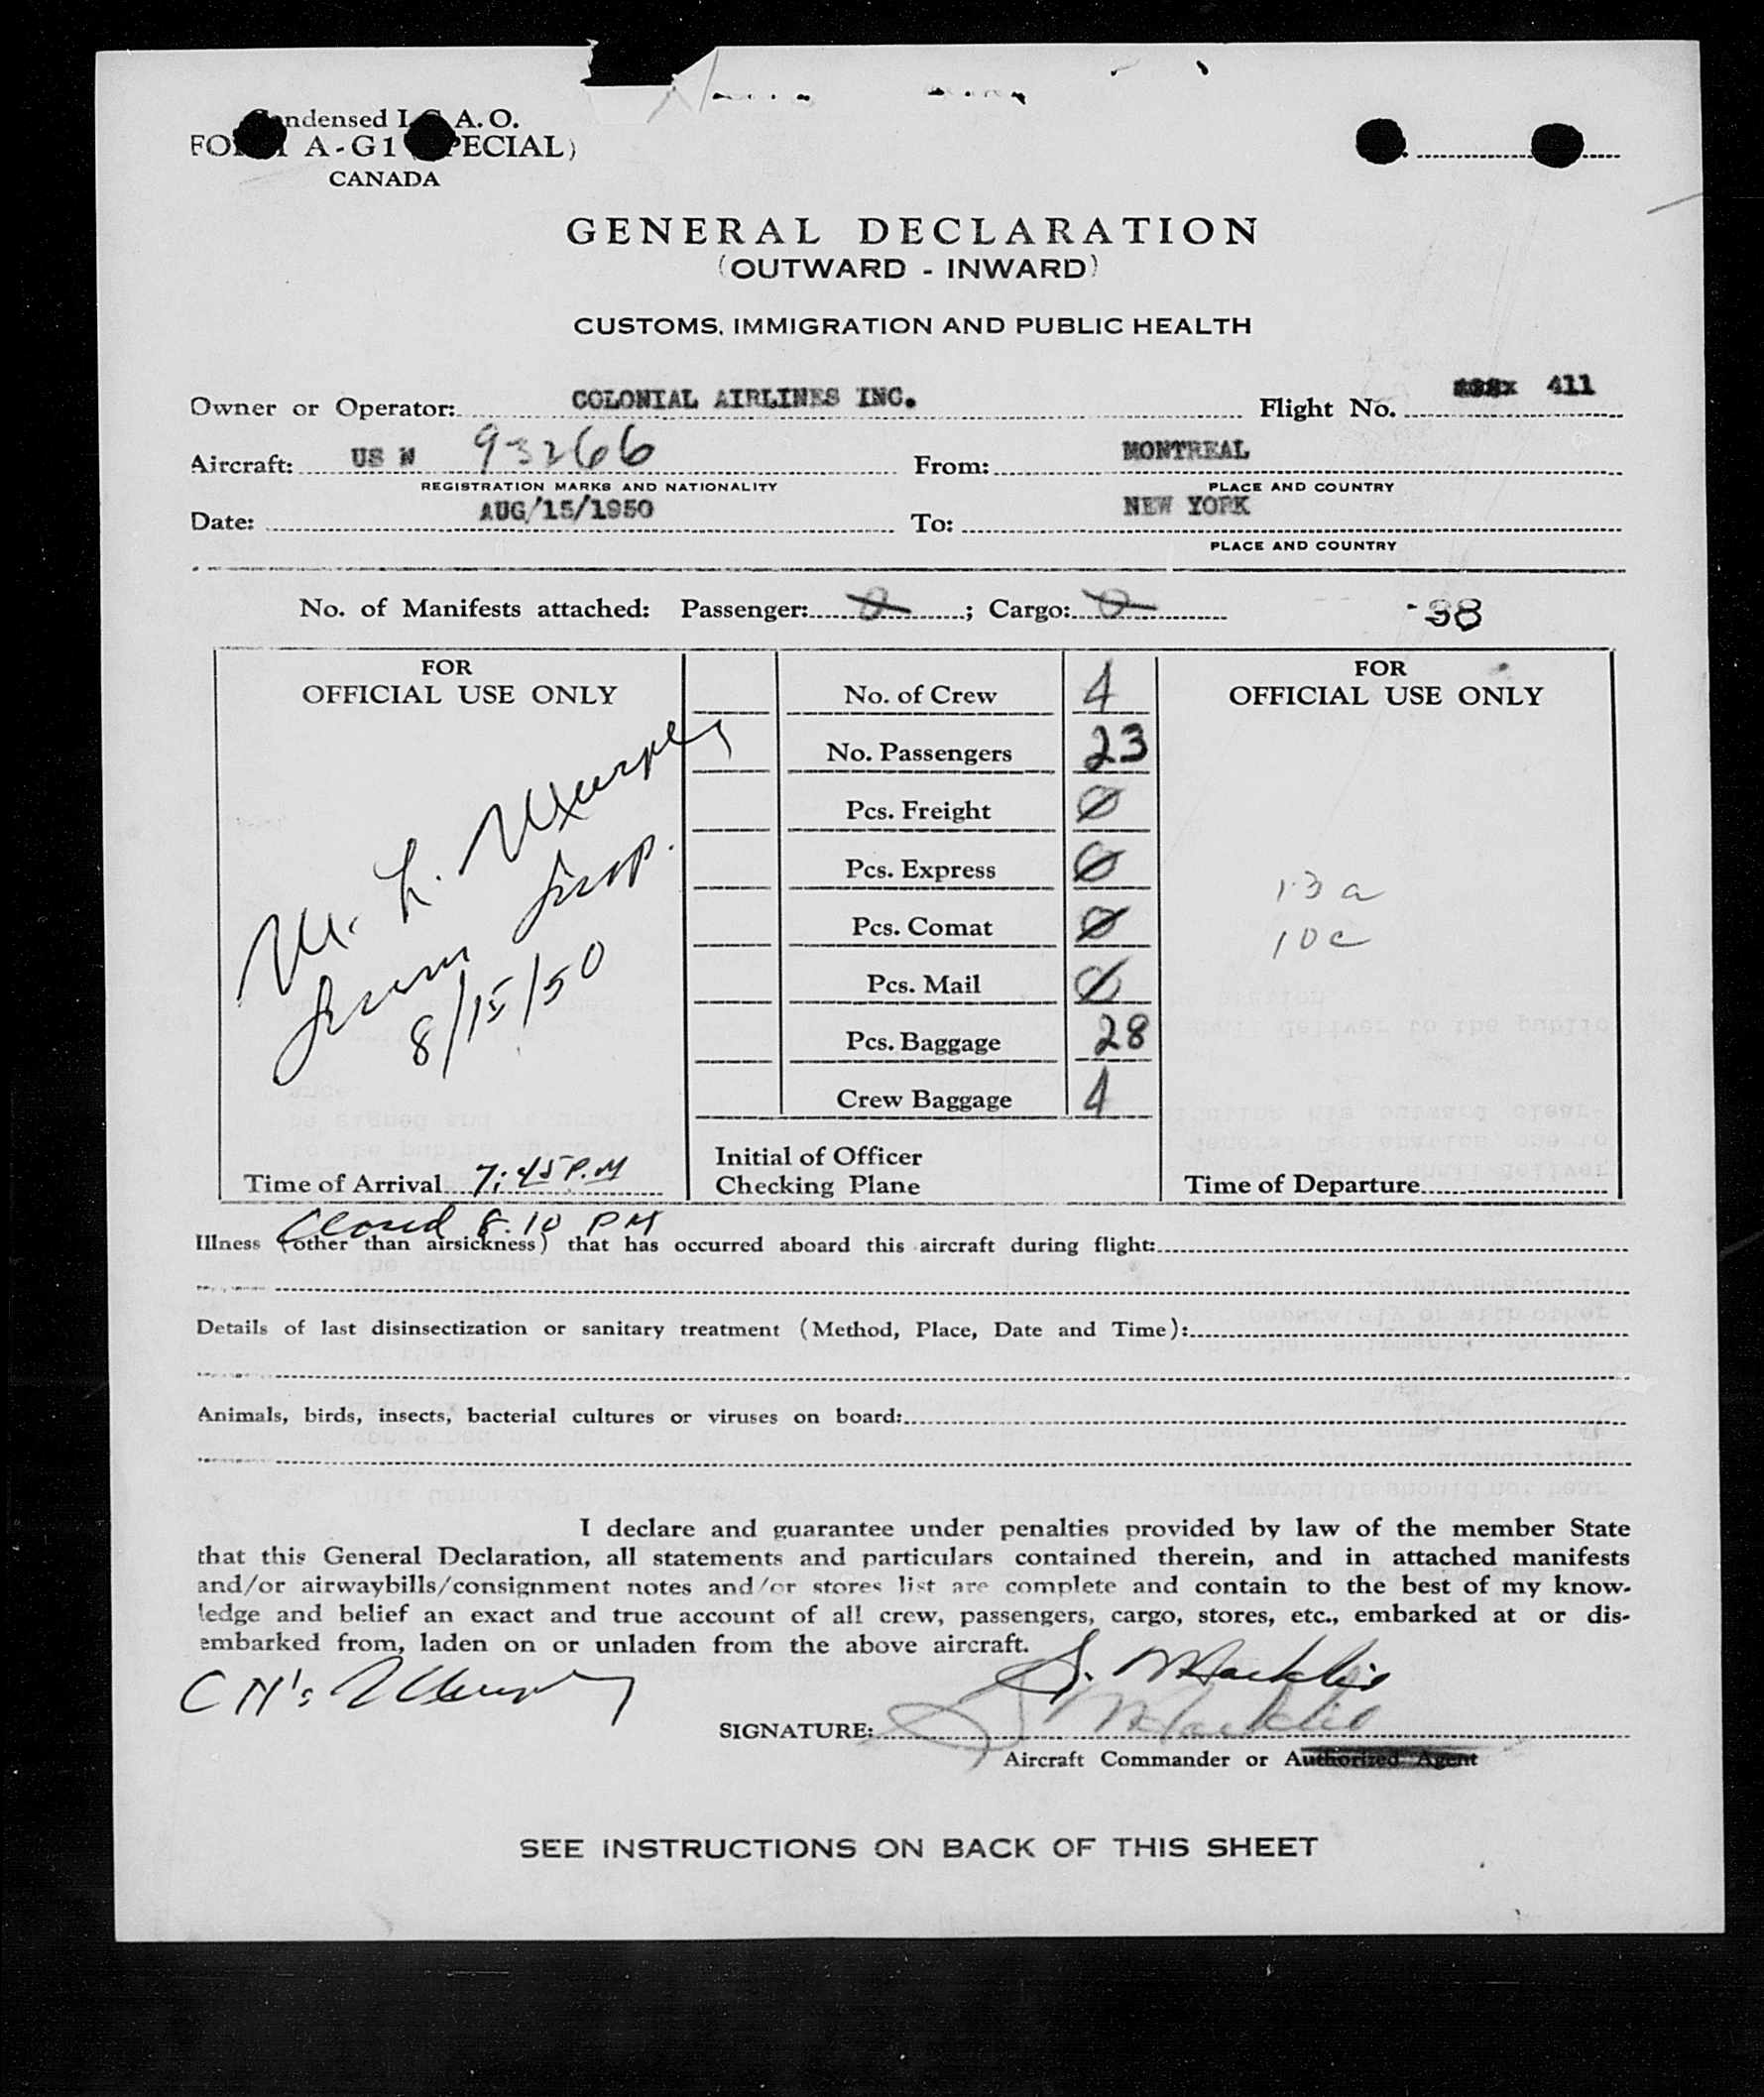 Condensed I.C.A.O.
FORM A-G1 (SPECIAL)
CANADA
GENERAL DECLARATION
(OUTWARD - INWARD)
CUSTOMS, IMMIGRATION AND PUBLIC HEALTH
Owner or Operator: COLONIAL AIRLINES INC. Flight No. 411
Aircraft: US N 93266 From: MONTREAL
REGISTRATION MARKS AND NATIONALITY PLACE AND COUNTRY
Date: AUG/15/1950 To: NEW YORK
PLACE AND COUNTRY
No. of Manifests attached: Passenger: 0; Cargo: 0 -38
FOR
OFFICIAL USE ONLY
M. L. Murphy
Imm Insp.
8/15/50
Time of Arrival 7:45 P.M
Closed 8.10 PM
No. of Crew 4
No. Passengers 23
Pcs. Freight 0
Pcs. Express 0
Pcs. Comat 0
Pcs. Mail 0
Pcs. Baggage 28
Crew Baggage 4
Initial of Officer
Checking Plane
FOR
OFFICIAL USE ONLY
13 a
10 c
Time of Departure
Illness (other than airsickness) that has occurred aboard this aircraft during flight:
Details of last disinsectization or sanitary treatment (Method, Place, Date and Time):
Animals, birds, insects, bacterial cultures or viruses on board:
I declare and guarantee under penalties provided by law of the member State
that this General Declaration, all statements and particulars contained therein, and in attached manifests
and/or airwaybills/consignment notes and/or stores list are complete and contain to the best of my know-
ledge and belief an exact and true account of all crew, passengers, cargo, stores, etc., embarked at or dis-
embarked from, laden on or unladen from the above aircraft.
S. Macklis
Murphy
SIGNATURE: S Macklis
Aircraft Commander or Authorized Agent
SEE INSTRUCTIONS ON BACK OF THIS SHEET